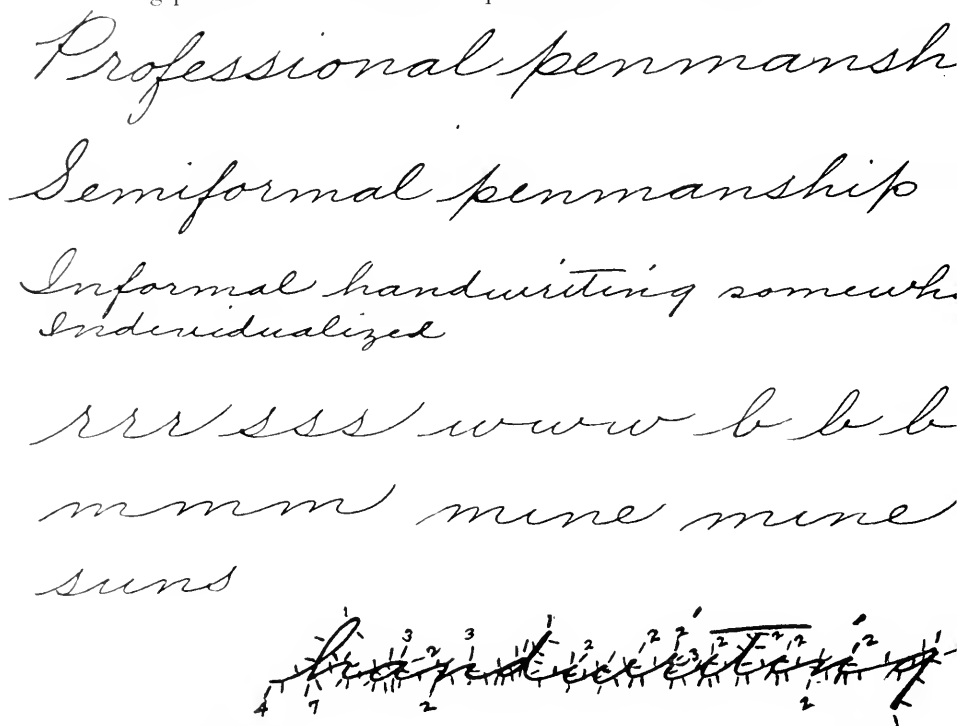 Professional penmansh
Semiformal penmanship
Informal handwriting somewh
Individualized
rrr sss www b b b
mmm mine mine
suns
handwriting
4 7 2 2